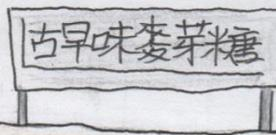 古早味麥芽糖